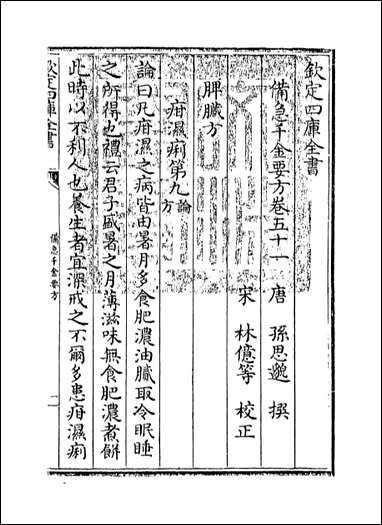 欽定四庫全書
備急千金要方卷五十一
唐 孫思邈 撰
宋 林億等 校正
脾臟方
疳濕痢第九 論 方
論曰凡疳濕之病皆由暑月多食肥濃油膩取冷眠睡
之所得也禮云君子盛暑之月薄滋味無食肥濃煮餅
此時以不利人也養生者宜深戒之不爾多患疳濕痢
欽定四庫全書
備急千金要方